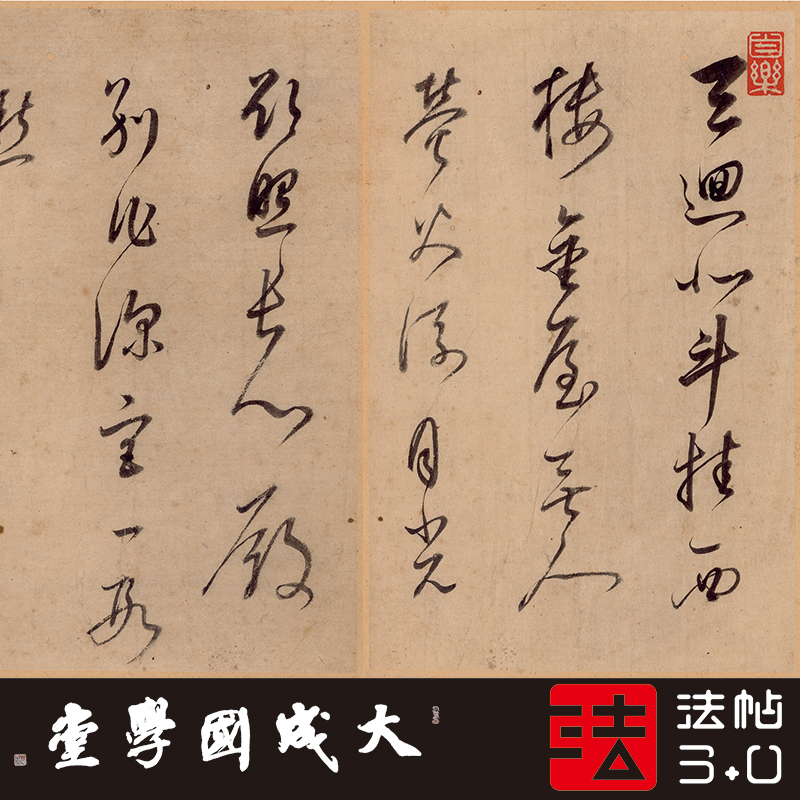 天迴北斗挂西
樓金屋無人
螢火流月光
欲照長門殿
別作深宮一段
愁
大成國學堂
法
法帖
3.0